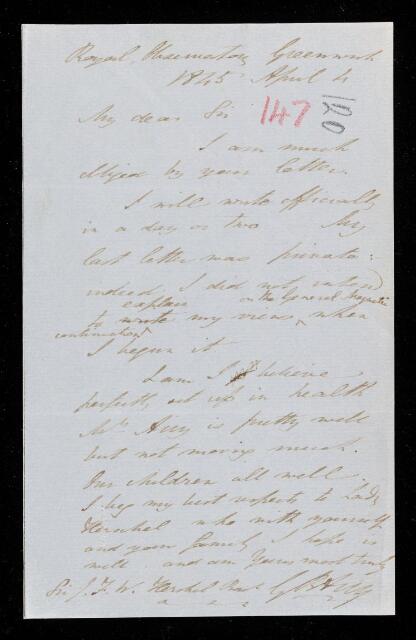 Royal Observatory Greenwich
1845 April 4
147
120
My dear Sir
I am much
obliged by your letter.
I will write officially
in a day or two My
last letter was private:
indeed I did not intend
explain on the General Magnetic
to wrote my views when
continuation
I begun it
I am I believe
perfectly set up in health
Mrs Airy is pretty well
but not moving much.
Our children all well.
I beg my best respects to Lady
Herschel who with yourself
and your family I hope is
well and am Yours most truly
Sir J. F. W. Herschel Bart G B Airy